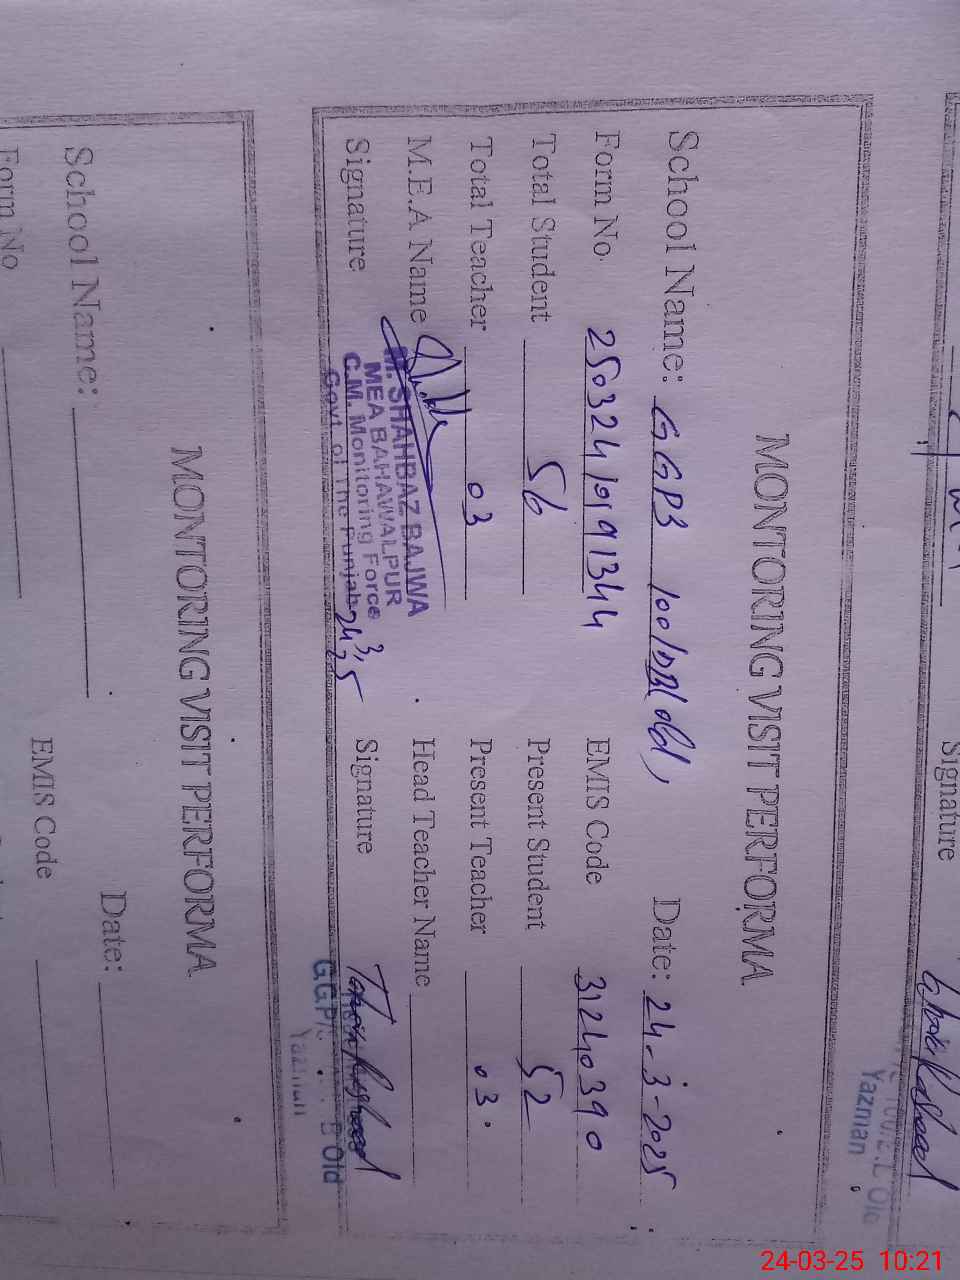 Signature
Yazman
MONTORING VISIT PERFORMA
School Name: GGPS 100/DB old, Date: 24-3-2025
Form No. 25032410191344 EMIS Code 31240390
Total Student 56 Present Student 52
Total Teacher 03 Present Teacher 03.
M.E.A Name Head Teacher Name
Signature Signature
M. SHAHBAZ BAJWA
MEA BAHAWALPUR
C.M. Monitoring Force
Govt. of The Punjab
Old
Yazman
MONTORING VISIT PERFORMA
School Name: Date:
Form No EMIS Code
24-03-25 10:21